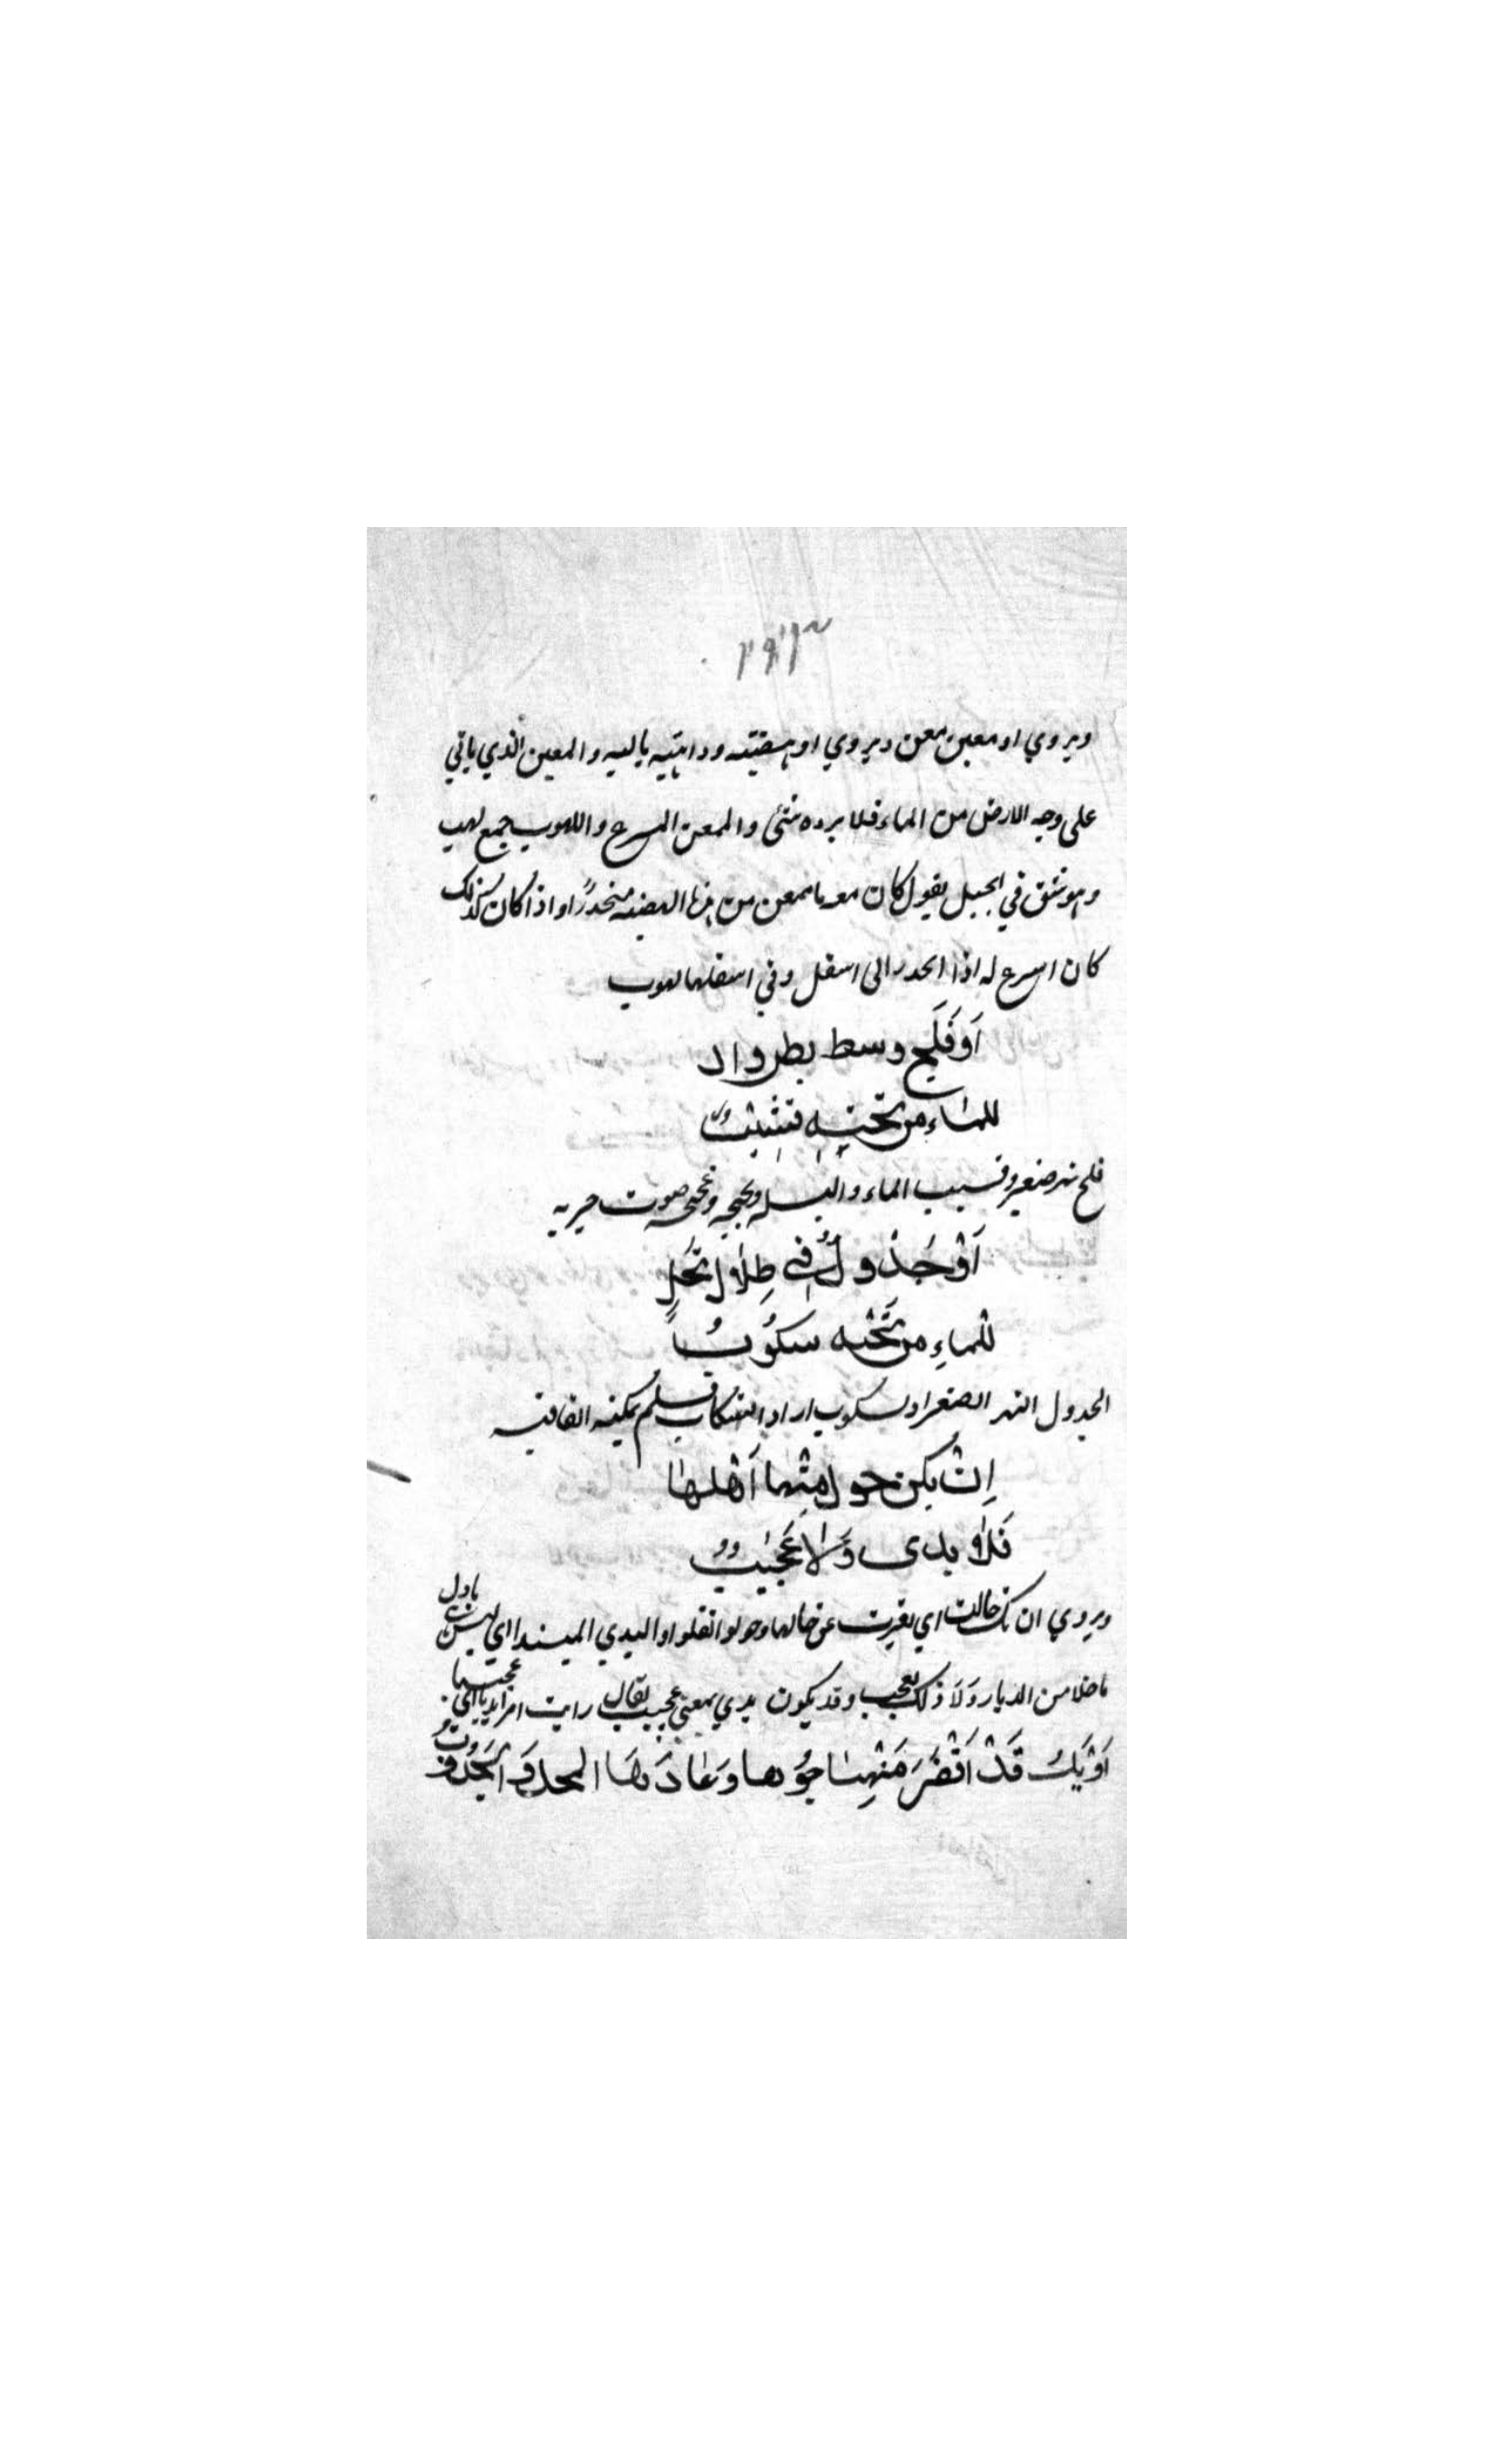 ٢٩٣
ويروي او معين معن ويروي او هضبته ودابتيه باليه والمعين الذي ياتي
على وجه الارض من الماء فلا يرده شئ والممعن المسرع واللهوب جمع لهب
وهو شق في الجبل يقول كان معه ما ممعن من هذا الهضبه منحدرًا واذا كان كذلك
كان اسرع له اذا انحدر الى اسفل وفي اسفلها لهوب
اَو فَلَج وسط بطن واد
للماء من تحته قشيبٌ
فلج نهر صغير وقسيب الماء واليله وبجيجه وعجيجه صوت جريه
اَوْ جَدْولٌ في ظِلاَل نَخْلٍ
للماءِ من تَحْته سكُوبُ
الجدول النهر الصغير او لسكوب اراد انسكاب فلم يمكنه القافيه
اِنْ يكن حول مِنْها اَهْلها
فَلاَ بدى وَلا عَجيبُ
ويروي ان تك حالت اي تغيرت عن حالها وحولوا انقلوا والبدي المبتدا اي ليس باول
ما خلا من الديار وَلاَ ذلك بعجب وقد يكون بدي بمعنى عجيب يقال رايت امرا بديا اي عجيبا
اَوْ يَكُ قَدْ اَقْفَرَ مَنْهَا جوُّها وَعَادَهَا المحل وَالجَدُوبُ